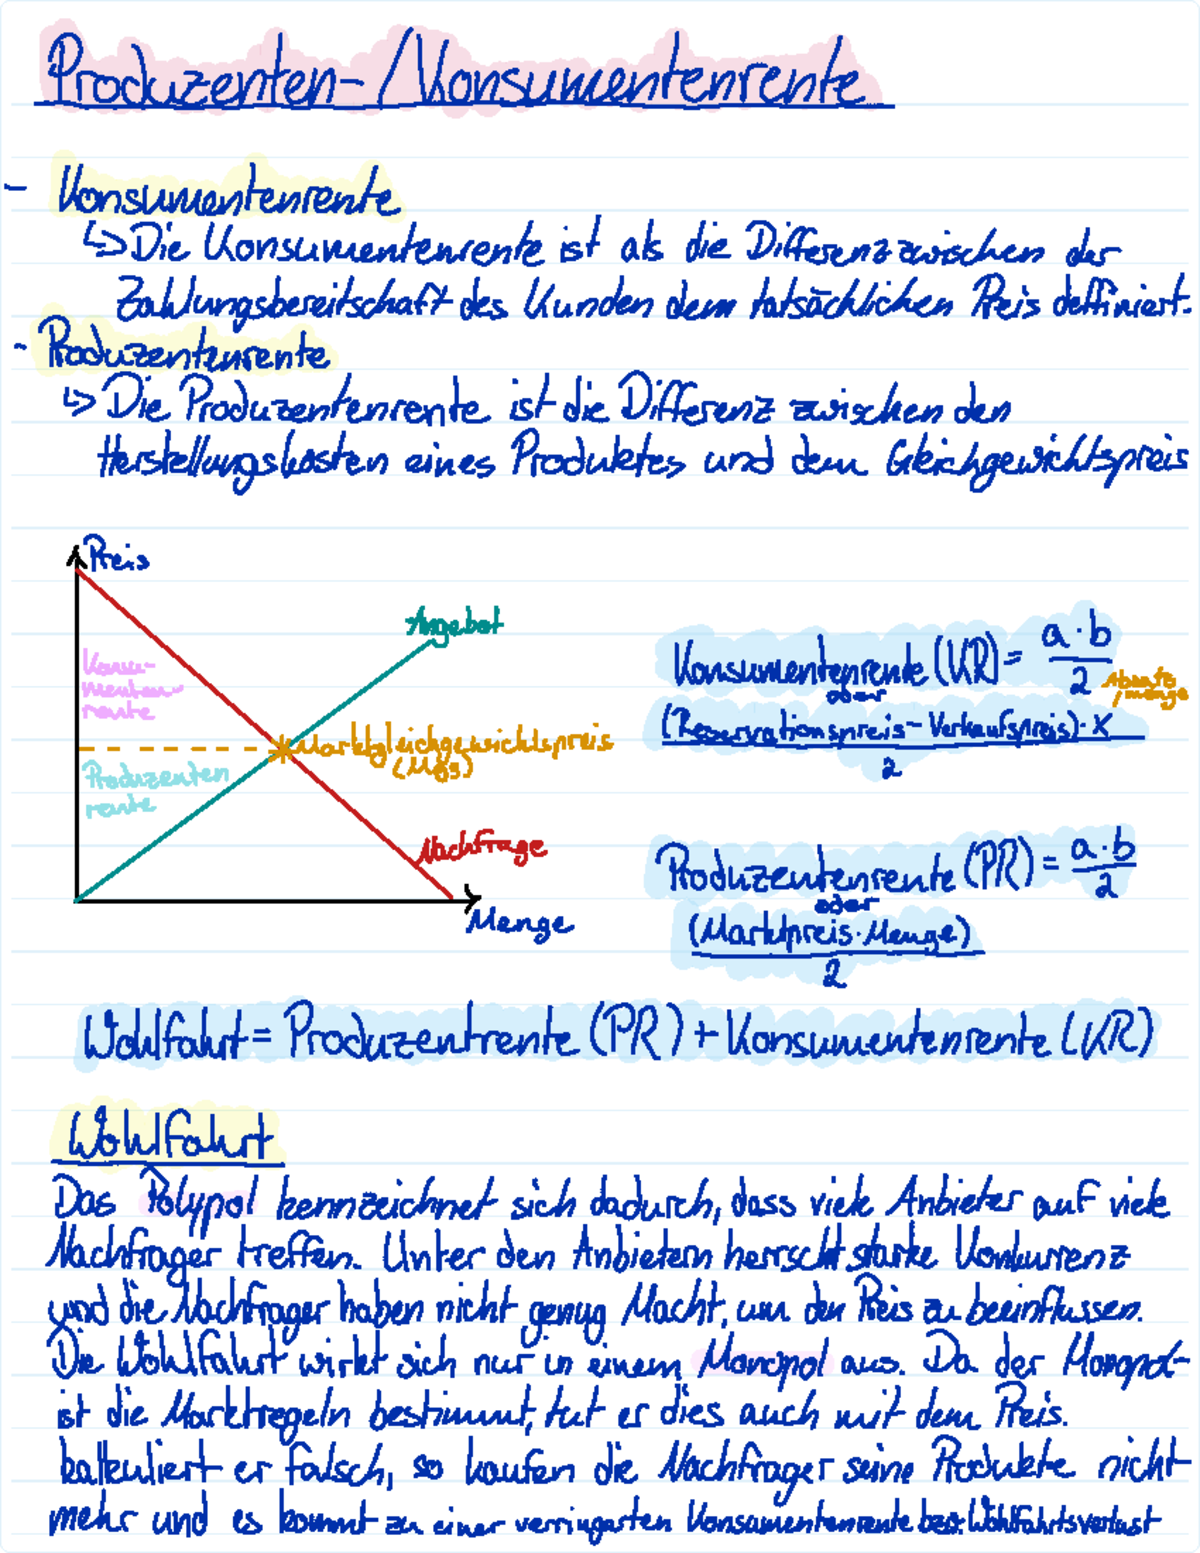 Produzenten-/Konsumentenrente
- Konsumentenrente
↳ Die Konsumentenrente ist als die Differenz zwischen der
Zahlungsbereitschaft des Kunden dem tatsächlichen Preis deffiniert.
- Produzentenrente
↳ Die Produzentenrente ist die Differenz zwischen den
Herstellungskosten eines Produktes und dem Gleichgewichtspreis
Preis
Angebot
Konsu-
menten-
rente
Marktgleichgewichtspreis
(MGG)
Produzenten
rente
Nachfrage
Menge
Konsumentenrente (KR) = a·b
2
Absatz
/menge
oder
(Reservationspreis - Verkaufspreis)·X
2
Produzentenrente (PR) = a·b
2
oder
(Marktpreis·Menge)
2
Wohlfahrt = Produzentrente (PR) + Konsumentenrente (KR)
Wohlfahrt
Das Polypol kennzeichnet sich dadurch, dass viele Anbieter auf viele
Nachfrager treffen. Unter den Anbietern herrscht starke Konkurrenz
und die Nachfrager haben nicht genug Macht, um den Preis zu beeinflussen.
Die Wohlfahrt wirkt sich nur in einem Monopol aus. Da der Monopol-
ist die Marktregeln bestimmt, tut er dies auch mit dem Preis.
kalkuliert er falsch, so kaufen die Nachfrager seine Produkte nicht
mehr und es kommt zu einer verringarten Konsumentenrente bzw. Wohlfahrtsverlust